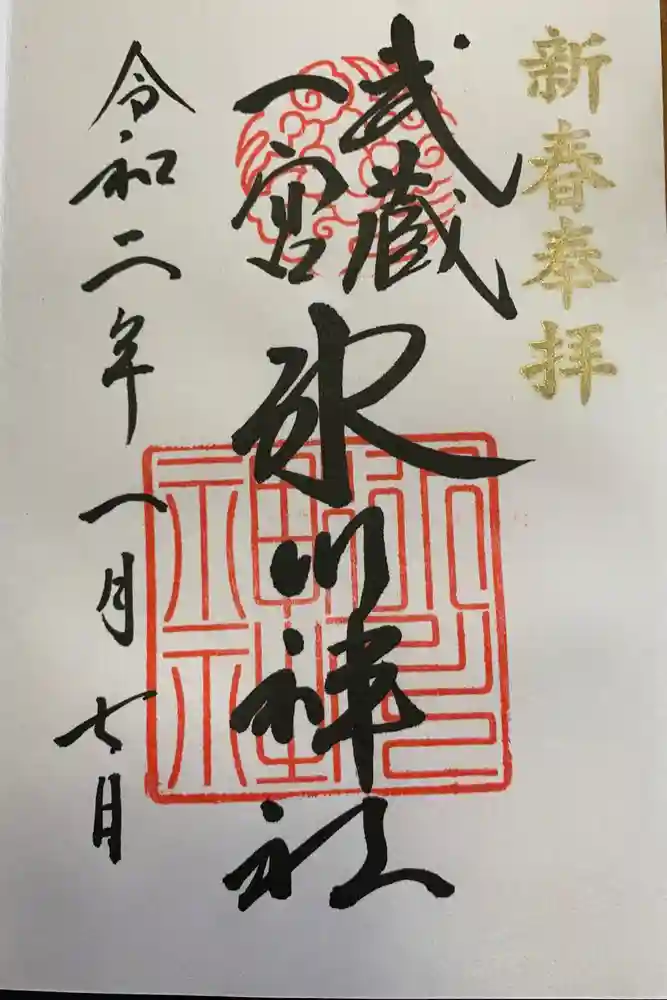 新春奉拝
武蔵
一宮
氷川神社
令和二年一月七日